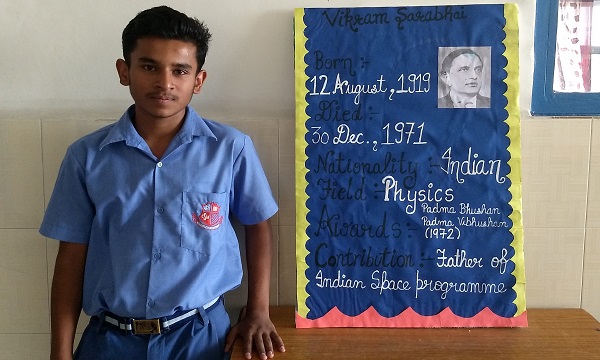 Vikram Sarabhai
Born :-
12 August, 1919
Died :-
30 Dec., 1971
Nationality :- Indian
Field :- Physics
Awards :- Padma Bhushan
Padma Vibhushan
(1972)
Contribution :- Father of
Indian Space programme